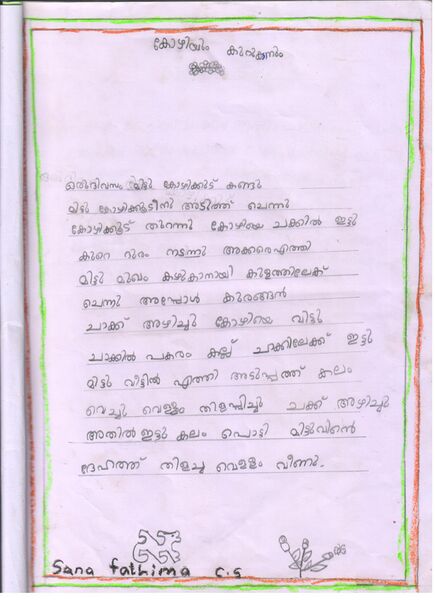 കോഴിയും കുറുക്കനും
ഒരുദിവസം മിട്ടു കോഴിക്കൂട് കണ്ടു
മിട്ടു കോഴിക്കൂടിനു അടുത്ത് ചെന്നു
കോഴിക്കൂട് തുറന്നു കോഴിയെ ചാക്കിൽ ഇട്ടു
കുറെ ദൂരം നടന്നു അക്കരെഎത്തി
മിട്ടു മുഖം കഴുകാനായി കുളത്തിലേക്ക്
ചെന്നു അപ്പോൾ കുരങ്ങൻ
ചാക്ക് അഴിച്ചു കോഴിയെ വിട്ടു
ചാക്കിൽ പകരം കല്ല് ചാക്കിലേക്ക് ഇട്ടു
മിട്ടു വീട്ടിൽ എത്തി അടുപ്പത്ത് കലം
വെച്ചു വെള്ളം തിളപ്പിച്ചു ചക്ക് അഴിച്ചു
അതിൽഇട്ടു കലം പൊട്ടി മിട്ടുവിൻെറ
ദേഹത്ത് തിളച്ച വെള്ളം വീണു.
Sana fathima C.S